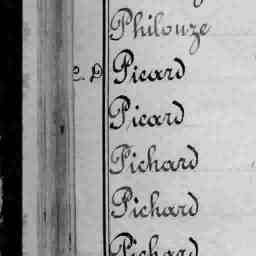 Philouze
Picard
Picard
Pichard
Pichard
Pichard